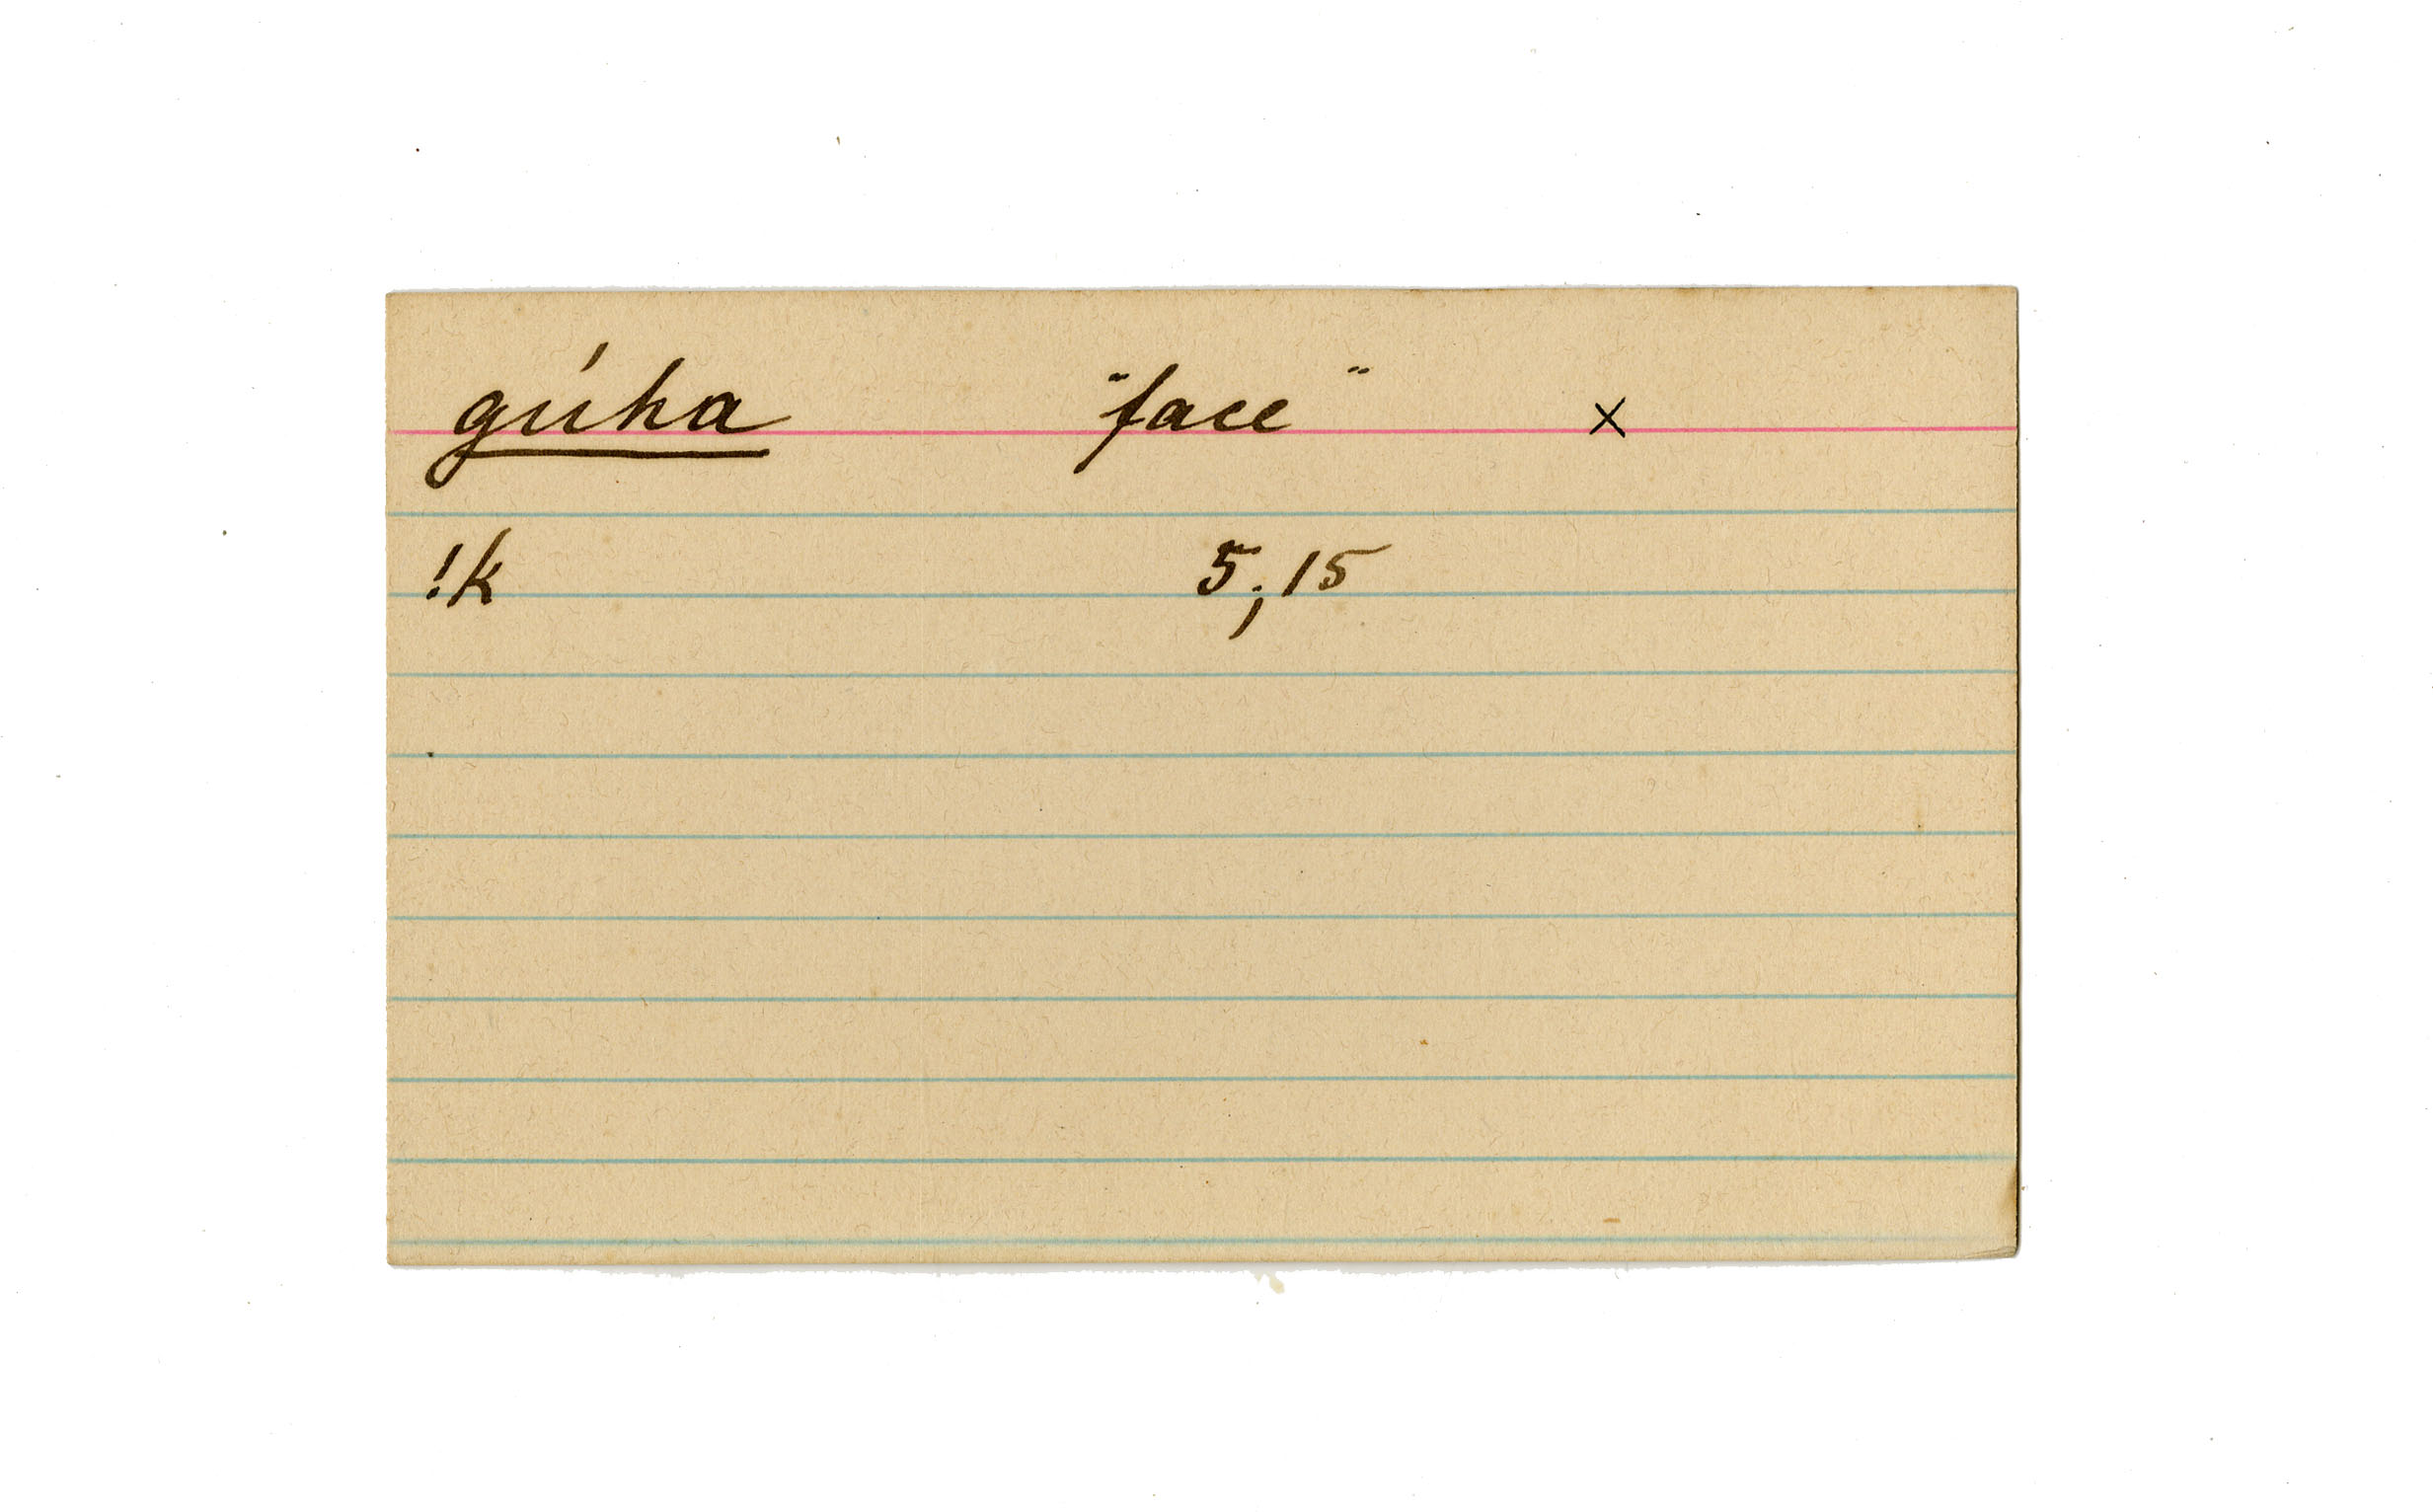 gúha "face" ×
!k 5; 15